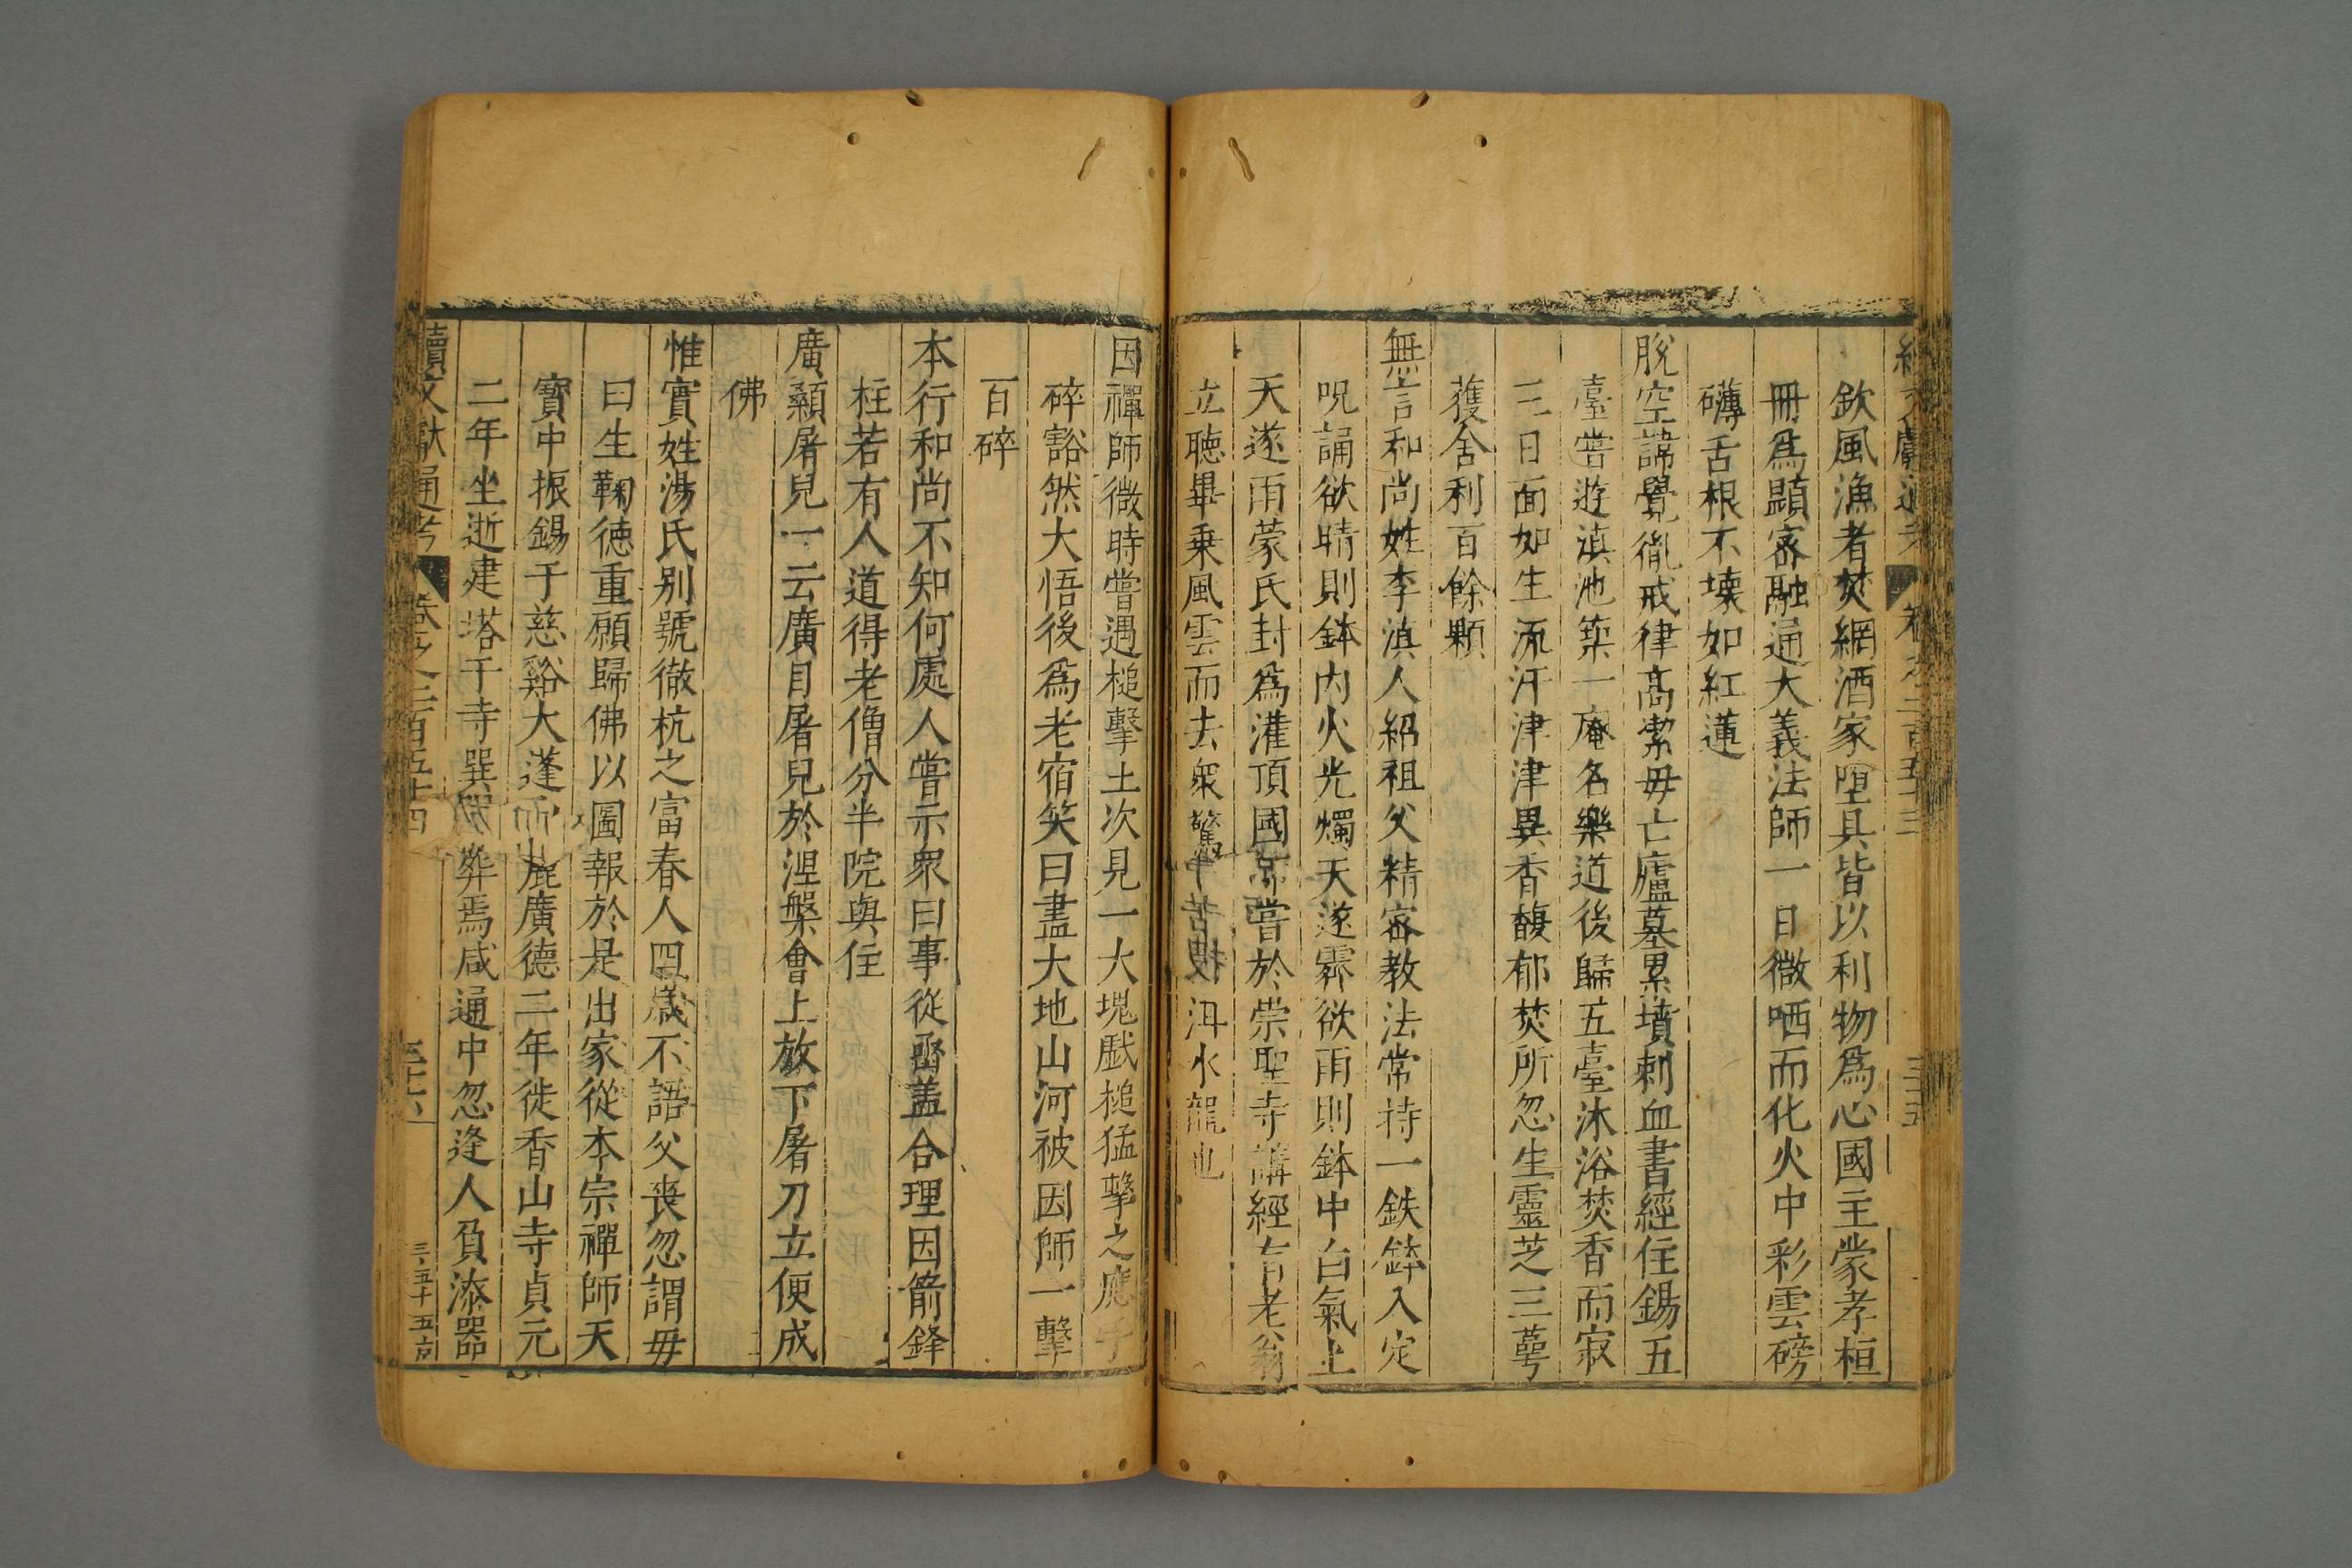 欽風漁者焚網酒家墮具皆以利物為心國主蒙孝桓
冊為顯密融通大義法師一日微哂而化火中彩雲磅
礴舌根不壞如紅蓮
脫空諦覺胤戒律高潔毋亡廬墓累墳刺血書經住錫五
臺嘗遊滇池築一庵名樂道後歸五臺沐浴焚香而寂
三日面如生流汗津津異香馥郁焚所忽生靈芝三萼
獲舍利百餘顆
無言和尚姓李滇人紹祖父精密教法常持一鉄鉢入定
呪誦欲晴則鉢內火光燭天遂霽欲雨則鉢中白氣上
天遂雨蒙氏封為灌頂國師嘗於崇聖寺講經有老翁
立聽畢乗風雲而去衆驚洱水龍也
因禪師微時嘗遇槌擊土次見一大塊戲槌猛擊之應手
碎豁然大悟後為老宿笑曰盡大地山河被因師一擊
百碎
本行和尚不知何處人嘗示衆曰事從函盖合理因箭鋒
柱若有人道得老僧分半院與住
廣顙屠兒一云廣目屠兒於涅槃會上放下屠刀立便成
佛
惟實姓湯氏别號徹杭之富春人四歲不語父喪忽謂毋
曰生鞠徳重願歸佛以圖報於是出家從本宗禪師天
寶中振錫于慈谿大蓬而山麂廣德二年徙香山寺貞元
二年坐逝建塔于寺巽葬焉咸通中忽逢人負漆器
續文獻通考 卷之二百五十四